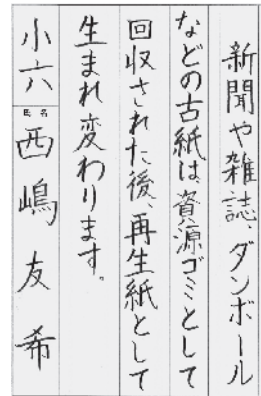 新聞や雑誌、ダンボール
などの古紙は資源ゴミとして
回収された後、再生紙として
生まれ変わります。
小六 氏名 西嶋友希